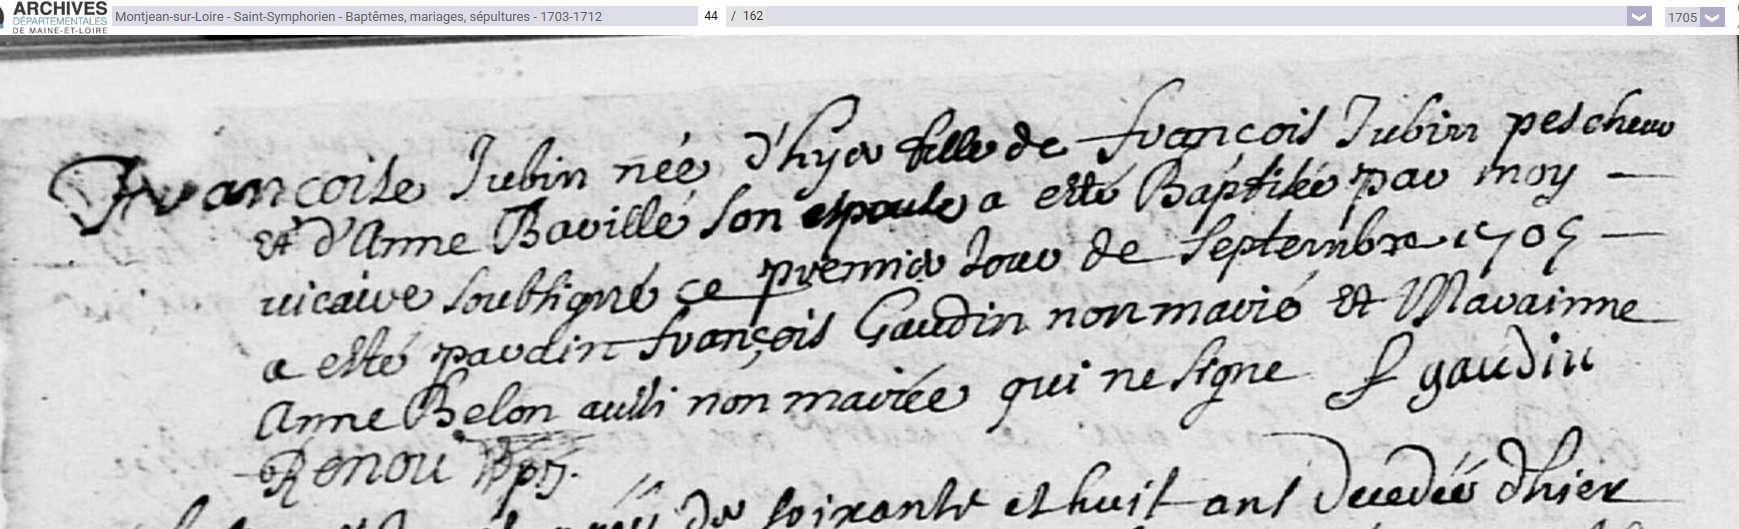 ARCHIVES
DÉPARTEMENTALES
DE MAINE-ET-LOIRE
Montjean-sur-Loire - Saint-Symphorien - Baptêmes, mariages, sépultures - 1703-1712
44 / 162
1705
Francoise Jubin née d'hyer fille de francois Jubin pescheur
et d'Anne Baville son espouse a esté Baptisée par moy
vicaire soubsigné ce premier Jour de Septembre 1705
a esté parain françois Gaudin non marié et Marainne
Anne Belon aussi non mariée qui ne signe f gaudin
Renou
de soixante et huit ans decedée d'hier